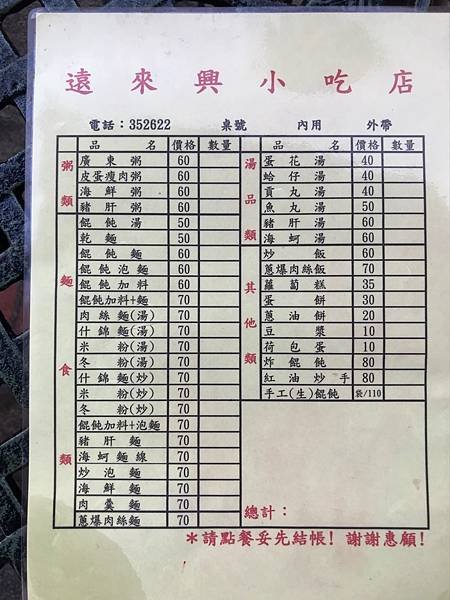 遠來興小吃店
電話：352622 桌號 內用 外帶
品名 價格 數量
粥類
廣東粥 60
皮蛋瘦肉粥 60
海鮮粥 60
豬肝粥 60
麵食類
餛飩湯 50
乾麵 50
餛飩麵 60
餛飩泡麵 60
餛飩加料 60
餛飩加料+麵 70
肉絲麵(湯) 70
什錦麵(湯) 70
米粉(湯) 70
冬粉(湯) 70
什錦麵(炒) 70
米粉(炒) 70
冬粉(炒) 70
餛飩加料+泡麵 70
豬肝麵 70
海蚵麵線 70
炒泡麵 70
海鮮麵 70
肉羹麵 70
蔥爆肉絲麵 70
品名 價格 數量
湯品類
蛋花湯 40
蛤仔湯 40
貢丸湯 40
魚丸湯 50
豬肝湯 60
海蚵湯 60
其他類
炒飯 60
蔥爆肉絲飯 70
蘿蔔糕 35
蛋餅 30
蔥油餅 20
豆漿 10
荷包蛋 10
炸餛飩 80
紅油炒手 80
手工(生)餛飩 袋/110
總計：
*請點餐妥先結帳!謝謝惠顧!